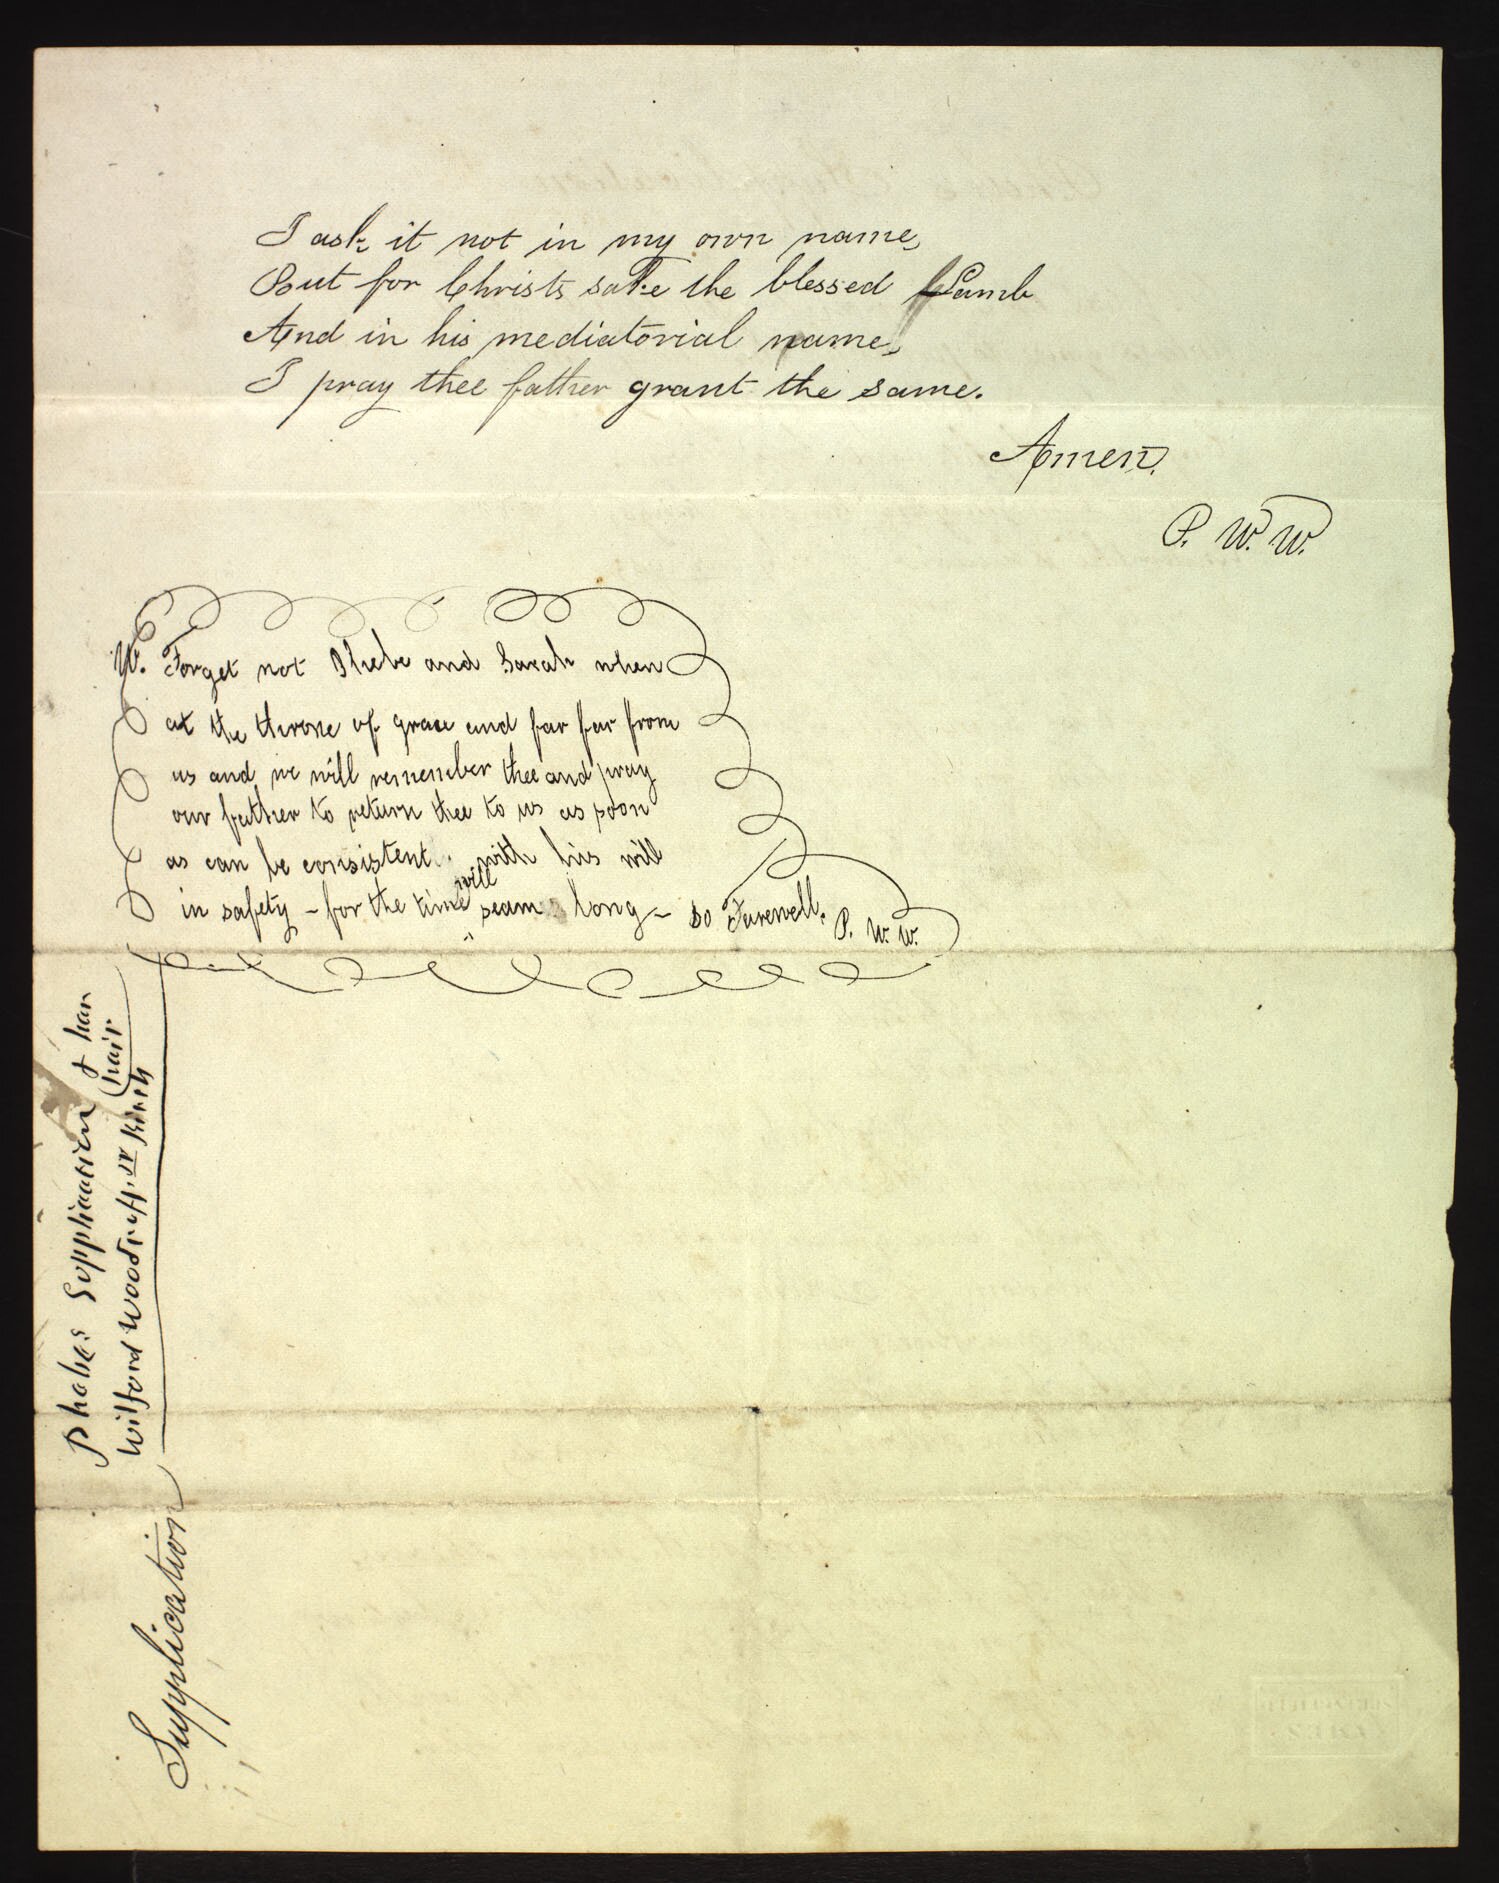 I ask it not in my own name,
But for Christs sake the blessed Lamb
And in his mediatorial name,
I pray thee father grant the same.
Amen.
P. W. W.
W. Forget not Phebe and Sarah when
at the throne of grace and far far from
us and we will remember thee and pray
our father to return thee to us as soon
as can be consistent with his will
in safety - for the time will seam long - so Farewell. P. W. W.
Phebes Supplication & har
hair
Wilford Woodruff. Sr
Supplication